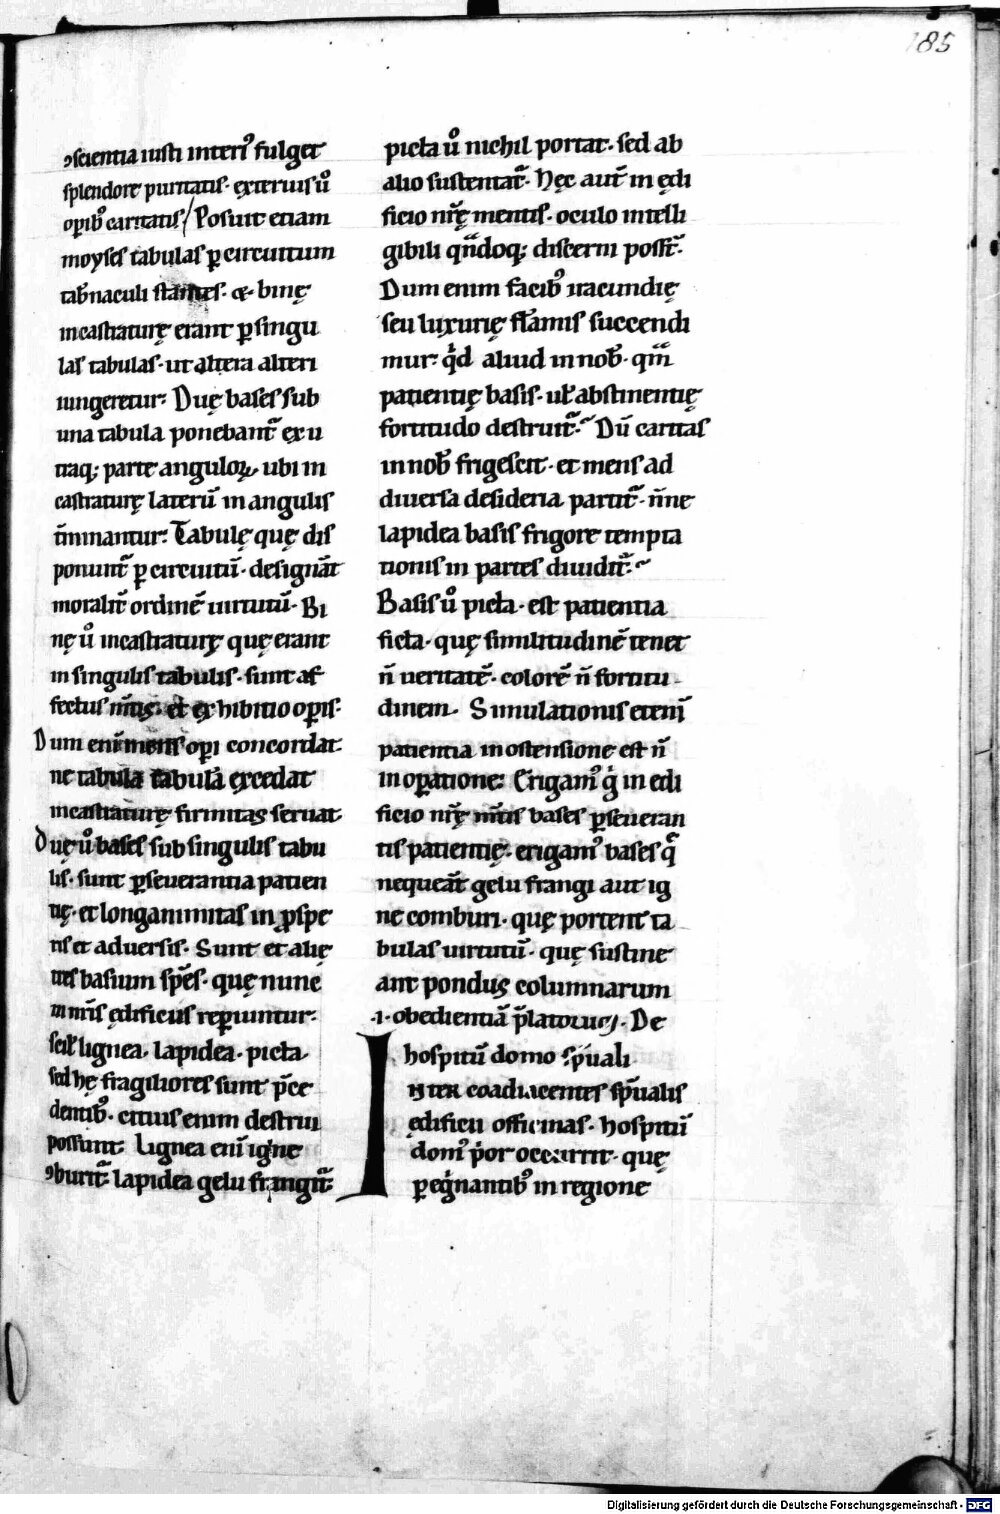 185
ꝯscientia iusti interiꝰ fulget
splendore puritatis· exteriusͥ uͦ
opibꝰ caritatis/ Posuit etiam
moyses tabulas ꝑ circuitum
tab̄naculi stantes· & binę
incastraturę erant ꝑ singu
las tabulas· ut altera alteri
iungeretur: Duę bases sub
una tabula ponebant̄ ex u
traq; parte anguloꝝ ubi in
castraturę lateru̅ in angulis
t̄minantur: Tabulę quę dis
ponunt̄ ꝑ circuitu̅· designa̅t
moralit̄ ordine̅ uirtutu̅· Bi
nę uͦ incastraturę quę erant
in singulis tabulis· sunt af
fectus m̅tis· et exhibitio oꝑis·
Dum eni̅ mens oꝑi concordat·
ne tabula tabula̅ excedat
incastraturę firmitas seruat·
Duę uͦ bases sub singulis tabu
lis· sunt ꝑseuerantia patien
tię· et longanimitas in ꝓspe
ris et aduersis· Sunt et alię
tres basium sp̅es· quę nunc
in nr̅is ędificiis reꝑiuntur:
scil̅ lignea· lapidea· picta·
sed hę fragiliores sunt p̅ce
dentibꝰ· citius enim destrui
possunt: lignea eni̅ igne
ꝯburit̄· lapidea gelu frangit̄:
picta uͦ nichil portat· sed ab
alio sustentat̄· Hęc aut̄ in ędi
ficio nr̅ę mentis· oculo intelli
gibili qn̅doq; discerni posst̄·
Dum enim facibꝰ iracundię
seu luxurię fla̅mis succendi
mur· qͥd aliud in nob̄· qm̅
patientię basis· ul̅ abstinentię
fortitudo destruit̄· Du̅ caritas
in nob̄ frigescit· et mens ad
diuersa desideria partit̄· n̅ne
lapidea basis frigore tempta
tionis in partes diuidit̄·
Basis uͦ picta· est patientia
ficta· quę similitudine̅ tenet
n̅ ueritate̅· colore̅ n̅ fortitu
dinem· Simulationis eteni̅
patientia in ostensione est n̅
in oꝑatione: Erigamꝰ gͥ in edi
ficio nr̅ę m̅tis bases ꝑseueran
tis patientię· erigamꝰ bases q̄
nequea̅t gelu frangi aut ig
ne comburi· quę portent ta
bulas uirtutu̅· quę sustine
ant pondus columnarum
·i· obedientia̅ p̅latorum· De
hospitu̅ domo sp̅uali
INTER coadiacentes sp̅ualis
ędificii officinas· hospitu̅
domꝰ pͥor occurrit· quę
ꝑegͥnantibꝰ in regione
Digitalisierung gefördert durch die Deutsche Forschungsgemeinschaft - DFG